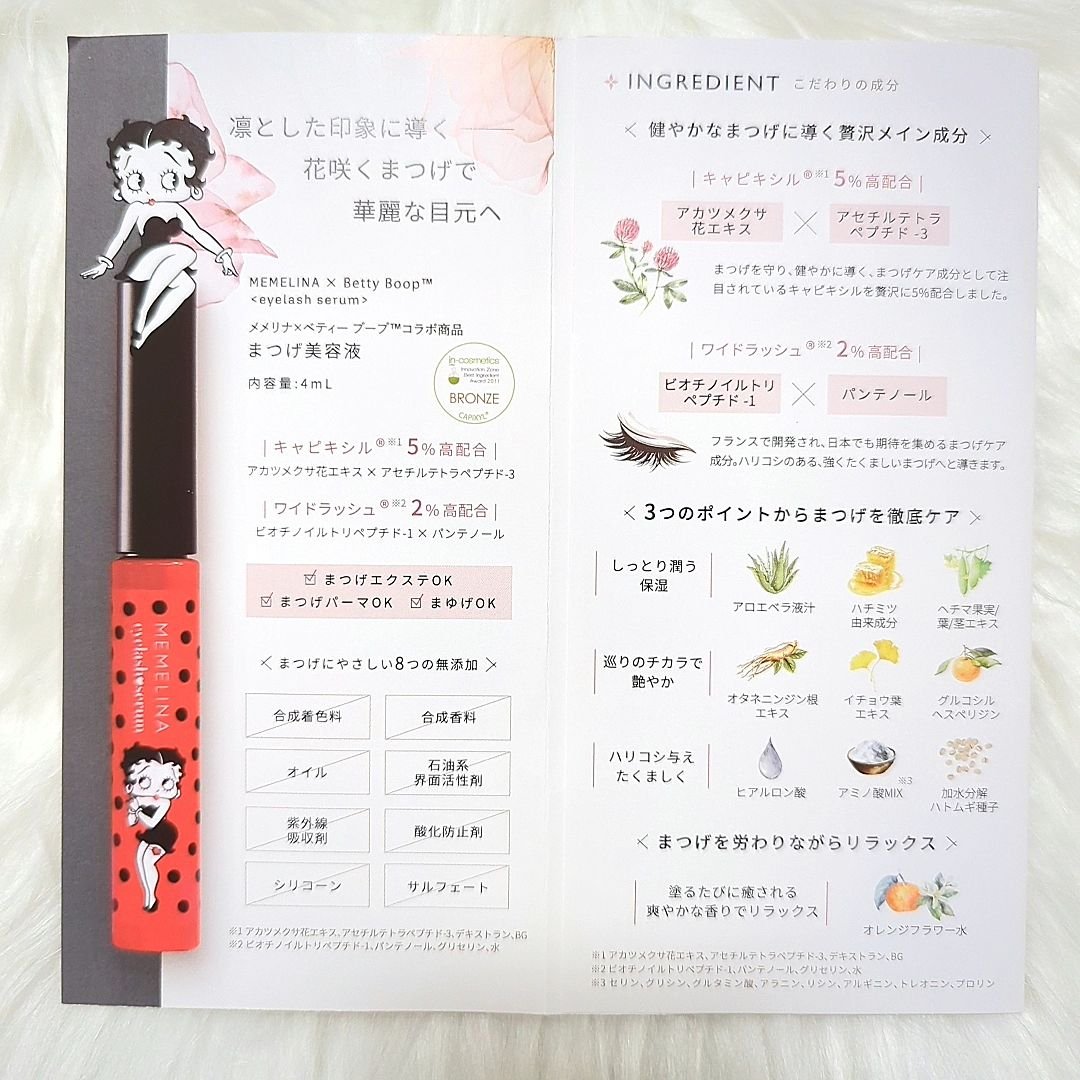 凛とした印象に導く
花咲くまつげで
華麗な目元へ
MEMELINA × Betty Boop™
<eyelash serum>
メメリナ×ベティー ブープ™コラボ商品
まつげ美容液
内容量:4mL
in-cosmetics
Innovation Zone
Best Ingredient
Award 2011
BRONZE
CAPIXYL®
| キャピキシル®※1 5%高配合 |
アカツメクサ花エキス × アセチルテトラペプチド-3
| ワイドラッシュ®※2 2%高配合 |
ビオチノイルトリペプチド-1 × パンテノール
☑ まつげエクステOK
☑ まつげパーマOK ☑ まゆげOK
まつげにやさしい8つの無添加
合成着色料
合成香料
オイル
石油系
界面活性剤
紫外線
吸収剤
酸化防止剤
シリコーン
サルフェート
※1 アカツメクサ花エキス、アセチルテトラペプチド-3、デキストラン、BG
※2 ビオチノイルトリペプチド-1、パンテノール、グリセリン、水
MEMELINA
eyelash serum
INGREDIENT こだわりの成分
健やかなまつげに導く贅沢メイン成分
| キャピキシル®※1 5%高配合 |
アカツメクサ
花エキス
×
アセチルテトラ
ペプチド -3
まつげを守り、健やかに導く、まつげケア成分として注
目されているキャピキシルを贅沢に5%配合しました。
| ワイドラッシュ®※2 2%高配合 |
ビオチノイルトリ
ペプチド -1
×
パンテノール
フランスで開発され、日本でも期待を集めるまつげケア
成分。ハリコシのある、強くたくましいまつげへと導きます。
3つのポイントからまつげを徹底ケア
しっとり潤う
保湿
アロエベラ液汁
ハチミツ
由来成分
ヘチマ果実/
葉/茎エキス
巡りのチカラで
艶やか
オタネニンジン根
エキス
イチョウ葉
エキス
グルコシル
ヘスペリジン
ハリコシ与え
たくましく
ヒアルロン酸
アミノ酸MIX※3
加水分解
ハトムギ種子
まつげを労わりながらリラックス
塗るたびに癒される
爽やかな香りでリラックス
オレンジフラワー水
※1 アカツメクサ花エキス、アセチルテトラペプチド-3、デキストラン、BG
※2 ビオチノイルトリペプチド-1、パンテノール、グリセリン、水
※3 セリン、グリシン、グルタミン酸、アラニン、リシン、アルギニン、トレオニン、プロリン